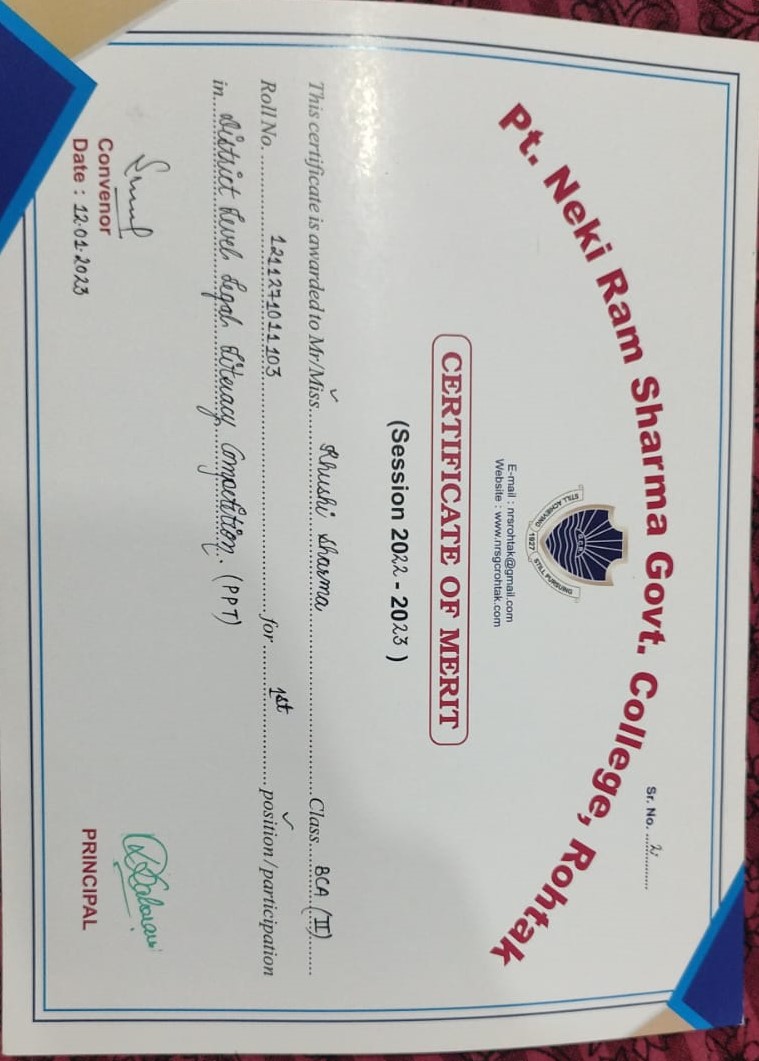 Pt. Neki Ram Sharma Govt. College, Rohtak
Sr. No. 2
G.C.R.
STILL ACHIEVING 1927 STILL PURSUING
E-mail : nrsrohtak@gmail.com
Website : www.nrsgcrohtak.com
CERTIFICATE OF MERIT
(Session 2022 - 2023 )
This certificate is awarded to Mr/Miss. Khushi Sharma Class BCA (II)
Roll No. 1211271011103 for 1st position/participation
in District Level Legal Literacy Competition. (PPT)
Convenor
Date : 12.01.2023
PRINCIPAL